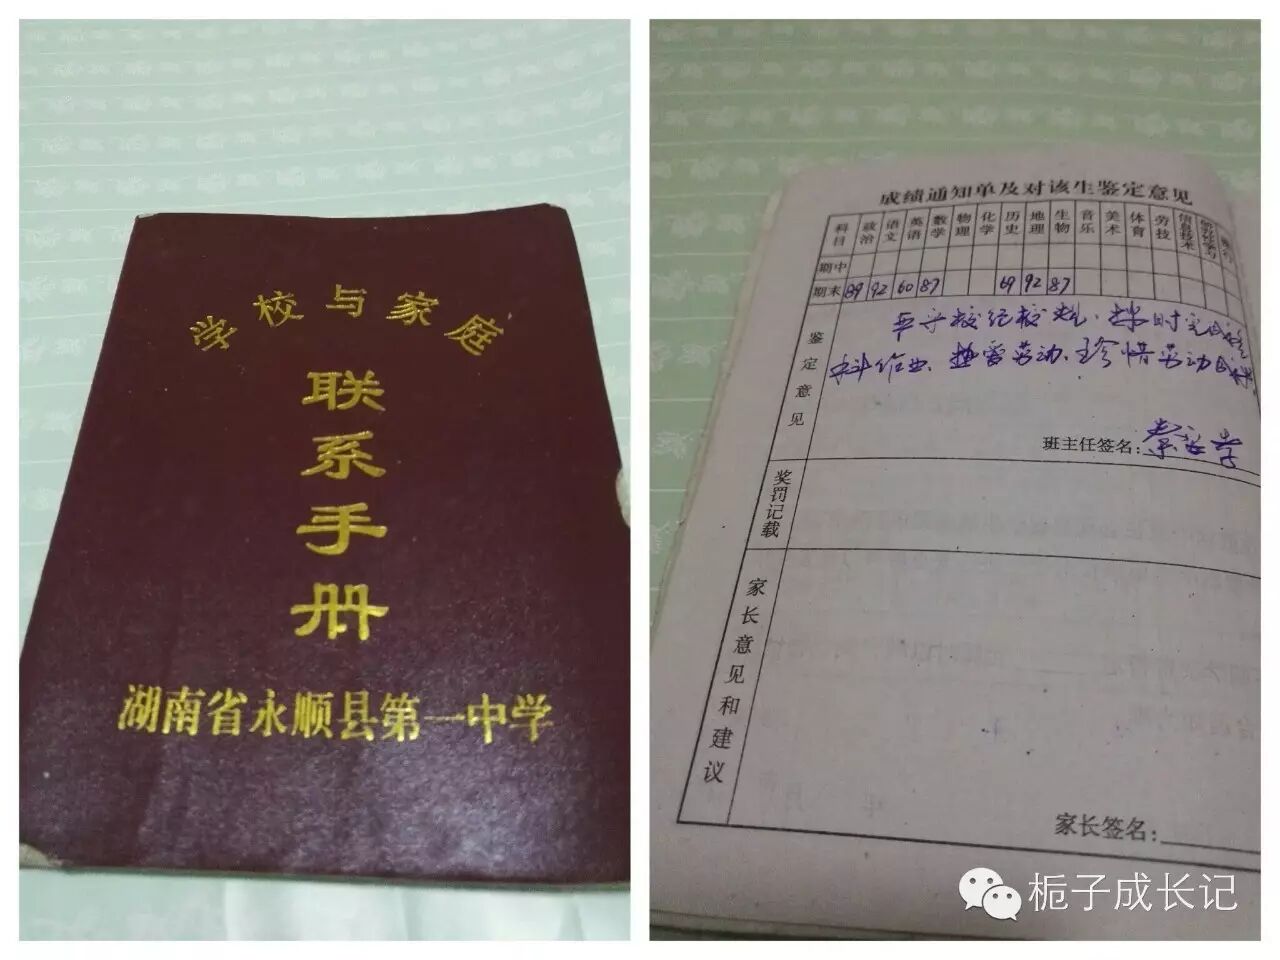 学校与家庭
联系手册
湖南省永顺县第一中学
成绩通知单及对该生鉴定意见
科目 政治 语文 英语 数学 物理 化学 历史 地理 生物 音乐 美术 体育 劳技 信息技术
期中
期末 89 92 60 87 69 92 87
鉴定意见
守校纪校规、按时完成
科作业、热爱劳动、珍惜劳动成果
班主任签名:
奖罚记载
家长意见和建议
家长签名:
栀子成长记